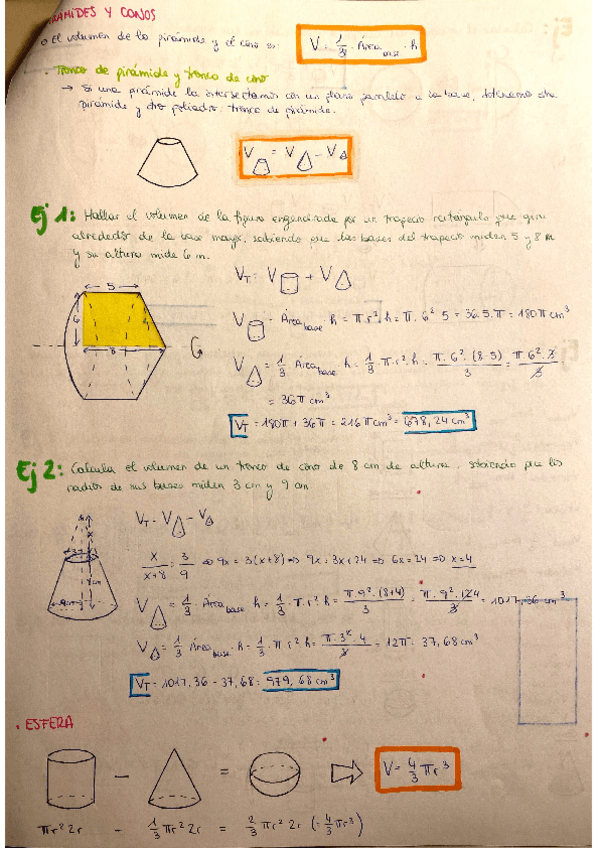 PIRÁMIDES Y CONOS
o El volumen de la pirámide y el cono es: V = 1/3 · Área base · h
· Tronco de pirámide y tronco de cono
→ Si una pirámide la intersectamos con un plano paralelo a la base, obtenemos otra
pirámide y otro poliedro: tronco de pirámide.
V = V - V
Ej 1: Hallar el volumen de la figura engendrada por un trapecio rectángulo que gira
alrededor de la base mayor, sabiendo que las bases del trapecio miden 5 y 8 m
y su altura mide 6 m.
VT = V + V
5
6
8
V = Área base · h = π r² · h = π · 6² · 5 = 36 · 5 · π = 180π cm³
V = 1/3 Área base · h = 1/3 · π · r² · h = π · 6² · (8-5)/3 = π 6² · 3/3
= 36π cm³
VT = 180π + 36π = 216π cm³ = 678,24 cm³
Ej 2: Calcula el volumen de un tronco de cono de 8 cm de altura, sabiendo que los
radios de sus bases miden 3 cm y 9 cm
VT = V - V
x
x/x+8 = 3/9 => 9x = 3(x+8) => 9x = 3x+24 => 6x = 24 => x = 4
V = 1/3 · Área base · h = 1/3 · π · r² · h = π · 9² · (8+4)/3 = π · 9² · 124/3 = 1017,36 cm³
V = 1/3 Área base · h = 1/3 · π r² h = π · 3² · 4/3 = 12π = 37,68 cm³
VT = 1017,36 - 37,68 = 979,68 cm³
· ESFERA
- = V = 4/3 πr³
πr² 2r - 1/3 πr² 2r = 2/3 πr² 2r (= 4/3 πr³)